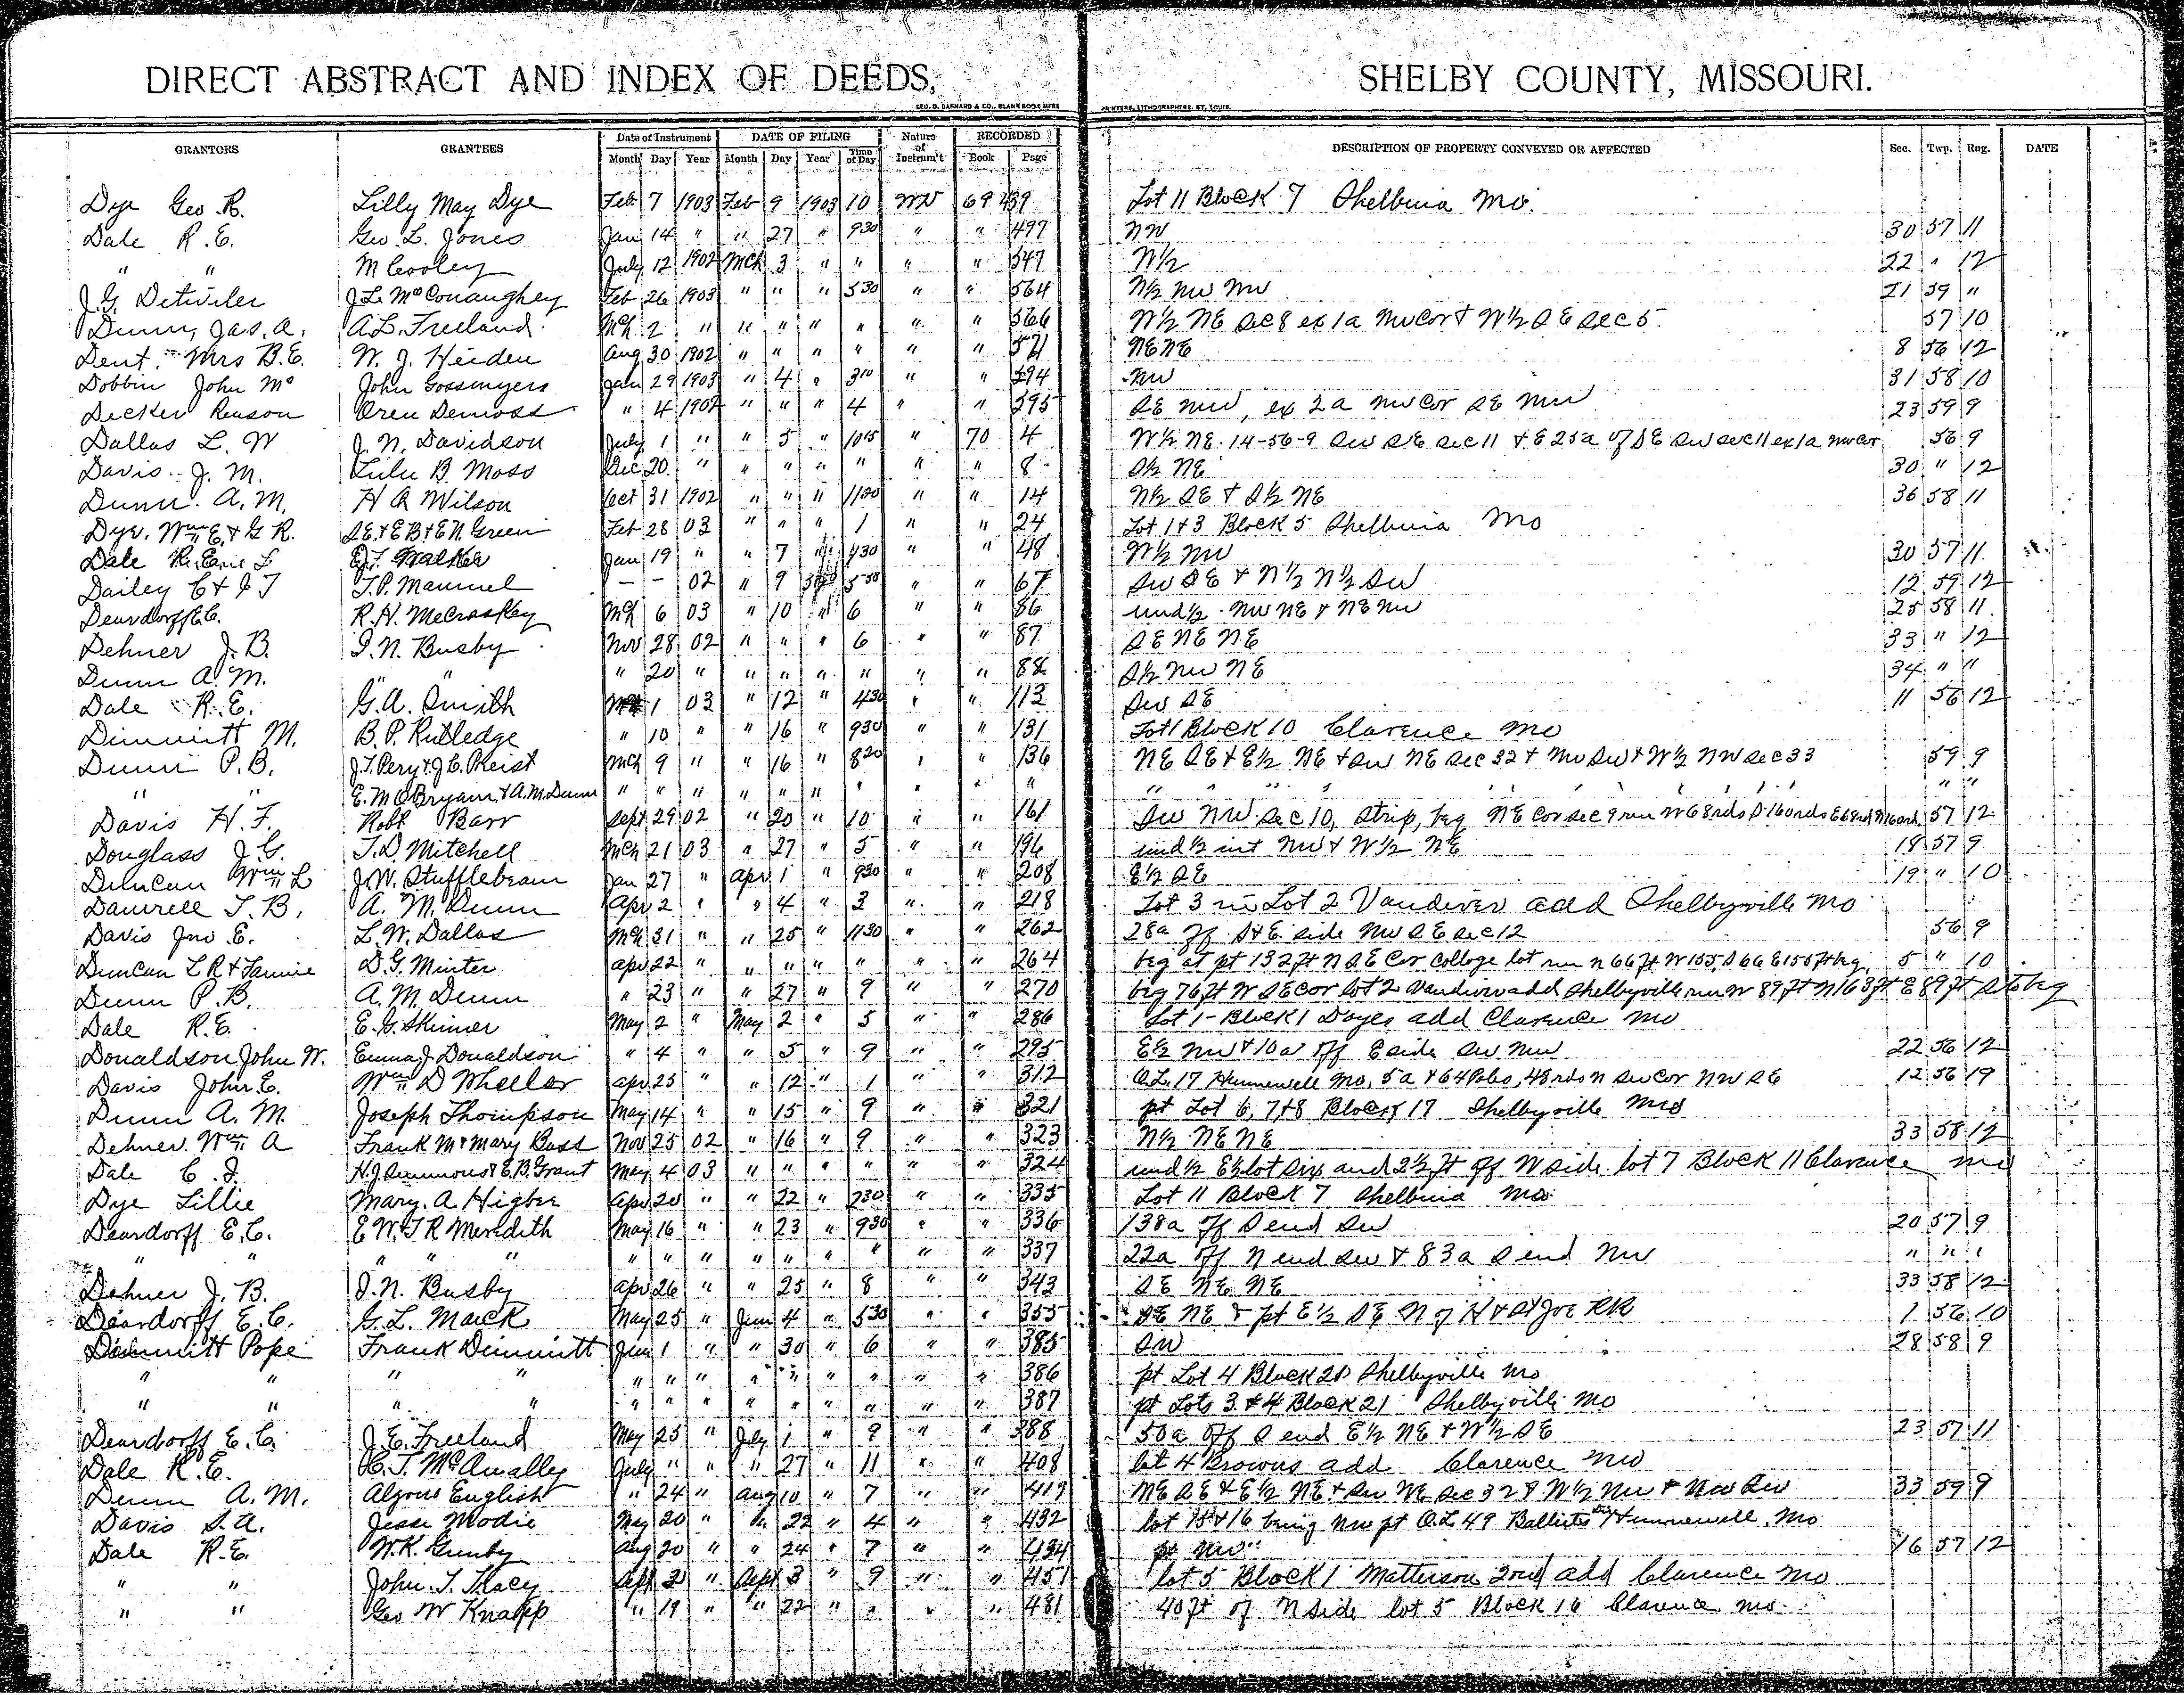 DIRECT ABSTRACT AND INDEX OF DEEDS, SHELBY COUNTY, MISSOURI.
GEO. D. BARNARD & CO., BLANK BOOK MFRS PRINTERS, LITHOGRAPHERS, ST. LOUIS.
GRANTORS GRANTEES Date of Instrument DATE OF FILING Nature of Instrum't RECORDED DESCRIPTION OF PROPERTY CONVEYED OR AFFECTED Sec. Twp. Rng. DATE
Month Day Year Month Day Year Time of Day Book Page
Dye Geo. R. Lilly May Dye Feb 7 1903 Feb 9 1903 10 WD 69 439 Lot 11 Block 7 Shelbina Mo.
Dale R.E. Geo. L. Jones Jan 14 " " 27 " 930 " " 497 NW 30 57 11
" " M Cooley July 12 1902 Mch 3 " " " " 547 N½ 22 " 12
J.G. Detwiler J.L. McConaughey Feb 26 1903 " " " 530 " " 564 N½ NW NW 21 59 "
Dunn, Jas. A. A.L. Freeland Mch 2 " " " " " " " 566 W½ NE Sec 8 ex 1a NW Cor & W½ SE Sec 5. 57 10
Dent, Mrs B.E. W. J. Heiden Aug 30 1902 " " " " " " 571 NE NE 8 56 12
Dobbin John Mc John Gossmyers Jan 29 1903 " 4 " 310 " " 594 NW 31 58 10
Decker Renson Oren Demoss " 4 1902 " " " 4 " " 595 SE NW, ex 2a NW Cor SE NW 23 59 9
Dallas L. W J. N. Davidson July 1 " " 5 " 1015 " 70 4 W½ NE 14-56-9 SW SE Sec 11 & E 25a of SE SW Sec 11 ex 1a NW Cor 56 9
Davis J. M. Lulu B. Moss Dec 20 " " " " " " " 8 S½ NE 30 " 12
Dunn A. M. H A Wilson Oct 31 1902 " " " 1120 " " 14 N½ SE & S½ NE 36 58 11
Dye, Wm E & G R. S.E & E B & E N Green Feb 28 03 " " " 1 " " 24 Lot 1 & 3 Block 5 Shelbina Mo
Dale R. E. Jan 19 " " 7 " 430 " " 48 W½ NW 30 57 11
Dailey C & J T T.P. Manuel — — 02 " 9 " " " 67 SW SE & N½ N½ SW 12 59 12
Deardorff E.C. R.H. McCroskey Mch 6 03 " 10 " 6 " " 86 und ½ NW NE & NE NW 25 58 11
Dehner J. B. I. N. Busby Nov 28 02 " " " 6 " " 87 SE NE NE 33 " 12
Dunn A. M. " " " 20 " " " " " " " 88 S½ NW NE 34 " "
Dale R. E. G. A. Smith 1 03 " 12 " 430 " " 113 SW SE 11 56 12
Dimmitt M. B. P. Rutledge " 10 " " 16 " 930 " " 131 Lot 1 Block 10 Clarence Mo
Dunn P. B. J.T. Pery & J.C. Preist Mch 9 " " 16 " 820 " " 136 NE SE & E½ NE & SW NE Sec 32 & NW SW & W½ NW Sec 33 59 9
" " E. M O'Bryan & A. M. Dunn " " " " " " " " " " " " " "
Davis H. F. Robt Barr Sept 29 02 " 20 " 10 " " 161 SW NW Sec 10, strip, beg NE Cor Sec 9 run W 68rds S 160rds E 68rd N 160rd 57 12
Douglass J. G. T. D Mitchell Mch 21 03 " 27 " 5 " " 196 und ½ int NW & W½ NE 18 57 9
Duncan Wm L J. W. Stufflebeam Jan 27 " Apr 1 " 930 " " 208 E½ SE 19 " 10
Damrell T. B. A. M. Dunn Apr 2 " " 4 " 3 " " 218 Lot 3 in Lot 2 Vandiver add Shelbyville Mo
Davis Jno E. L. W. Dallas Mch 31 " " 25 " 1130 " " 262 28a off S & E. side NW SE Sec 12 56 9
Duncan L R & Fannie D. G. Minter Apr 22 " " " " " " " 264 beg at pt 132 ft N SE Cor College lot run n 66 ft W 155, S 66 E 155 ft beg. 5 " 10
Dunn P. B. A. M. Dunn " 23 " " 27 " 9 " " 270 beg 76 ft W SE cor lot 2 Vandiver add Shelbyville run W 89 ft N 163 ft E 89 ft S to beg
Dale R.E. E. G. Skinner May 2 " May 2 " 5 " " 286 Lot 1 - Block 1 Doyes add Clarence Mo
Donaldson John W. Emma J Donaldson " 4 " " 5 " 9 " " 295 E½ NW & 10a off E side SW NW 22 56 12
Davis John E. Wm D Wheeler Apr 25 " " 12 " 1 " " 312 O.L. 17 Hunnewell Mo, 5a & 64 Poles, 48 rds N SW Cor NW SE 12 56 19
Dunn A. M. Joseph Thompson May 14 " " 15 " 9 " " 321 pt Lot 6, 7 & 8 Block 17 Shelbyville Mo
Dehner Wm A Frank M & Mary Bass Nov 25 02 " 16 " 9 " " 323 N½ NE NE 33 58 12
Dale C. J. H. J. Simmons & E. B. Grant May 4 03 " " " " " " 324 und ½ E½ lot six and 2½ ft off W side lot 7 Block 11 Clarence Mo
Dye Lillie Mary. A Higbee Apr 20 " " 22 " 230 " " 335 Lot 11 Block 7 Shelbina Mo
Deardorff E.C. E W & T R Meredith May 16 " " 23 " 930 " " 336 138a off S end SW 20 57 9
" " " " " " " " " " " " " " 337 22a off N end SW & 83a S end NW " " "
Dehner J. B. I. N. Busby Apr 26 " " 25 " 8 " " 343 SE NE NE 33 58 12
Deardorff E. C. G. L. Mack May 25 " Jun 4 " 530 " " 355 SE NE & pt E½ SE N of H & St Joe RR 1 56 10
Dimmitt Pope Frank Dimmitt Jun 1 " " 30 " 6 " " 385 SW 28 58 9
" " " " " " " " " " " " " 386 pt Lot 4 Block 20 Shelbyville Mo
" " " " " " " " " " " " " 387 pt Lots 3 & 4 Block 21 Shelbyville Mo
Deardorff E. C. J. E. Freeland May 25 " July 1 " 9 " " 388 50a off S end E½ NE & W½ SE 23 57 11
Dale R. E. July " " " 27 " 11 " " 408 lot 4 Browns add Clarence Mo
Dunn A. M. English " 24 " Aug 10 " 7 " " 419 NE SE & E½ NE & SW NE Sec 32 & W½ NW & NW SW 33 59 9
Davis S. A. Jesse Modie May 20 " " 22 " 4 " " 432 lot 15 & 16 being NW pt O.L. 49 Hunnewell, Mo
Dale R.E. W. R. Gunby Aug 20 " " 24 " 7 " " 434 pt NW 16 57 12
" " John. T. Tracy Sept " Sept 3 " 9 " " 451 lot 5 Block 1 Matterson 2nd add Clarence Mo
" " Geo W Knapp " 19 " " 22 " " " " 481 40 ft of N side lot 5 Block 16 Clarence Mo.